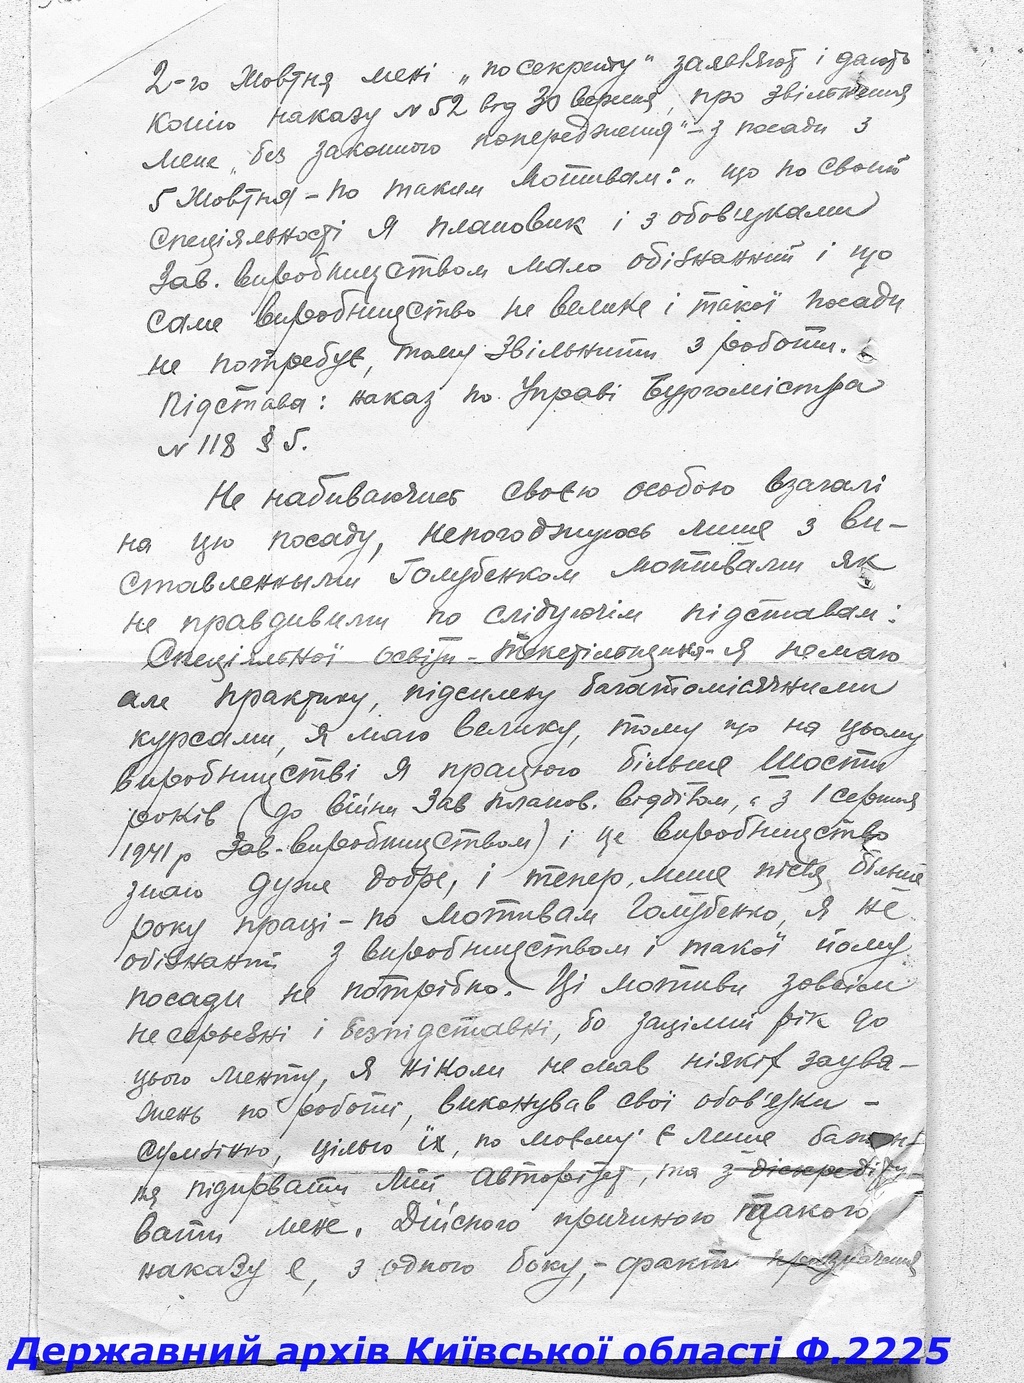 2-го Жовтня мені „по секрету" заявляют і дають
копію наказу №52 від 30 вересня, про звільнення
мене „без законного попередження"- з посади з
5 Жовтня - по таким Мотивам: „що по своїй
спеціяльності Я плановик і з обов'язками
Зав. виробництвом мало обізнаний і що
саме виробництво не велике і такої посади
не потребує, тому Звільнити з роботи.
Підстава: наказ по Управі Бургомістра
№ 118 § 5.
Не набиваючись своєю особою взагалі
на цю посаду, непогоджуюсь лише з ви-
ставленными Голубенком мотивами як
не правдивими по слідуючім підставам:
Спеціяльної освіти - текстільщика - Я немаю
але практику, підсилену багатомісячними
курсами, я маю велику, тому що на цьому
виробництві Я працюю більше Шости
років (до війни Зав планов. відділом, а з 1 серпня
1941 р Зав. виробництвом) і це виробництво
знаю дуже добре, і тепер, лише після більше
року праці - по Мотивам Голубенко, я не
обізнаний з виробництвом і такої йому
посади не потрібно. Ці мотиви зовсім
несерьезні і безпідставні, бо зацілий рік до
цього менту, я ніколи не мав ніяких заува-
жень по роботі, виконував свої обов'язки -
сумлінно, цілью їх, по моєму є лише бажан-
ня підирвати Мій Авторітет, та здіскредіту-
вати мене. Дійсною причиною такого
наказу є, з одного боку, - факт
Державний архів Київської області Ф.2225